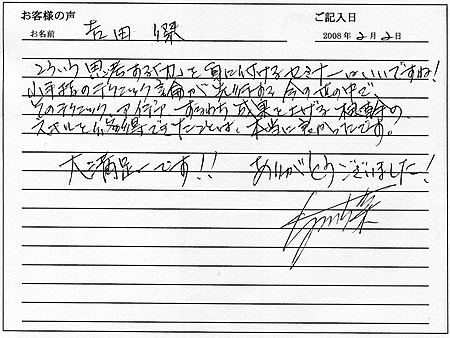 お客様の声
ご記入日
お名前 吉田
2008年2月2日
こういう思考する「力」を身に付けるセミナーはいいですね!
小手先のテクニック論が先行する今の世の中で、
そのテクニック、アイデア、すなわち成果を上げる
スキルを心得できたことは、本当に良かったです。
大満足ーです!! ありがとうございました!